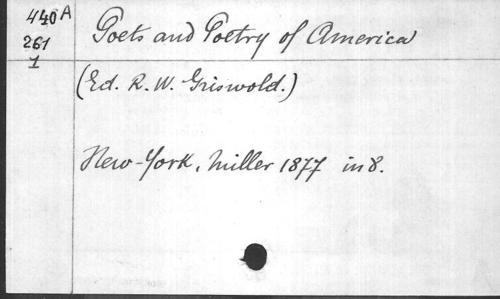 440 A
261
1
Poets and Poetry of America
(Ed. R. W. Griswold.)
New-York, Miller 1877 in 8.